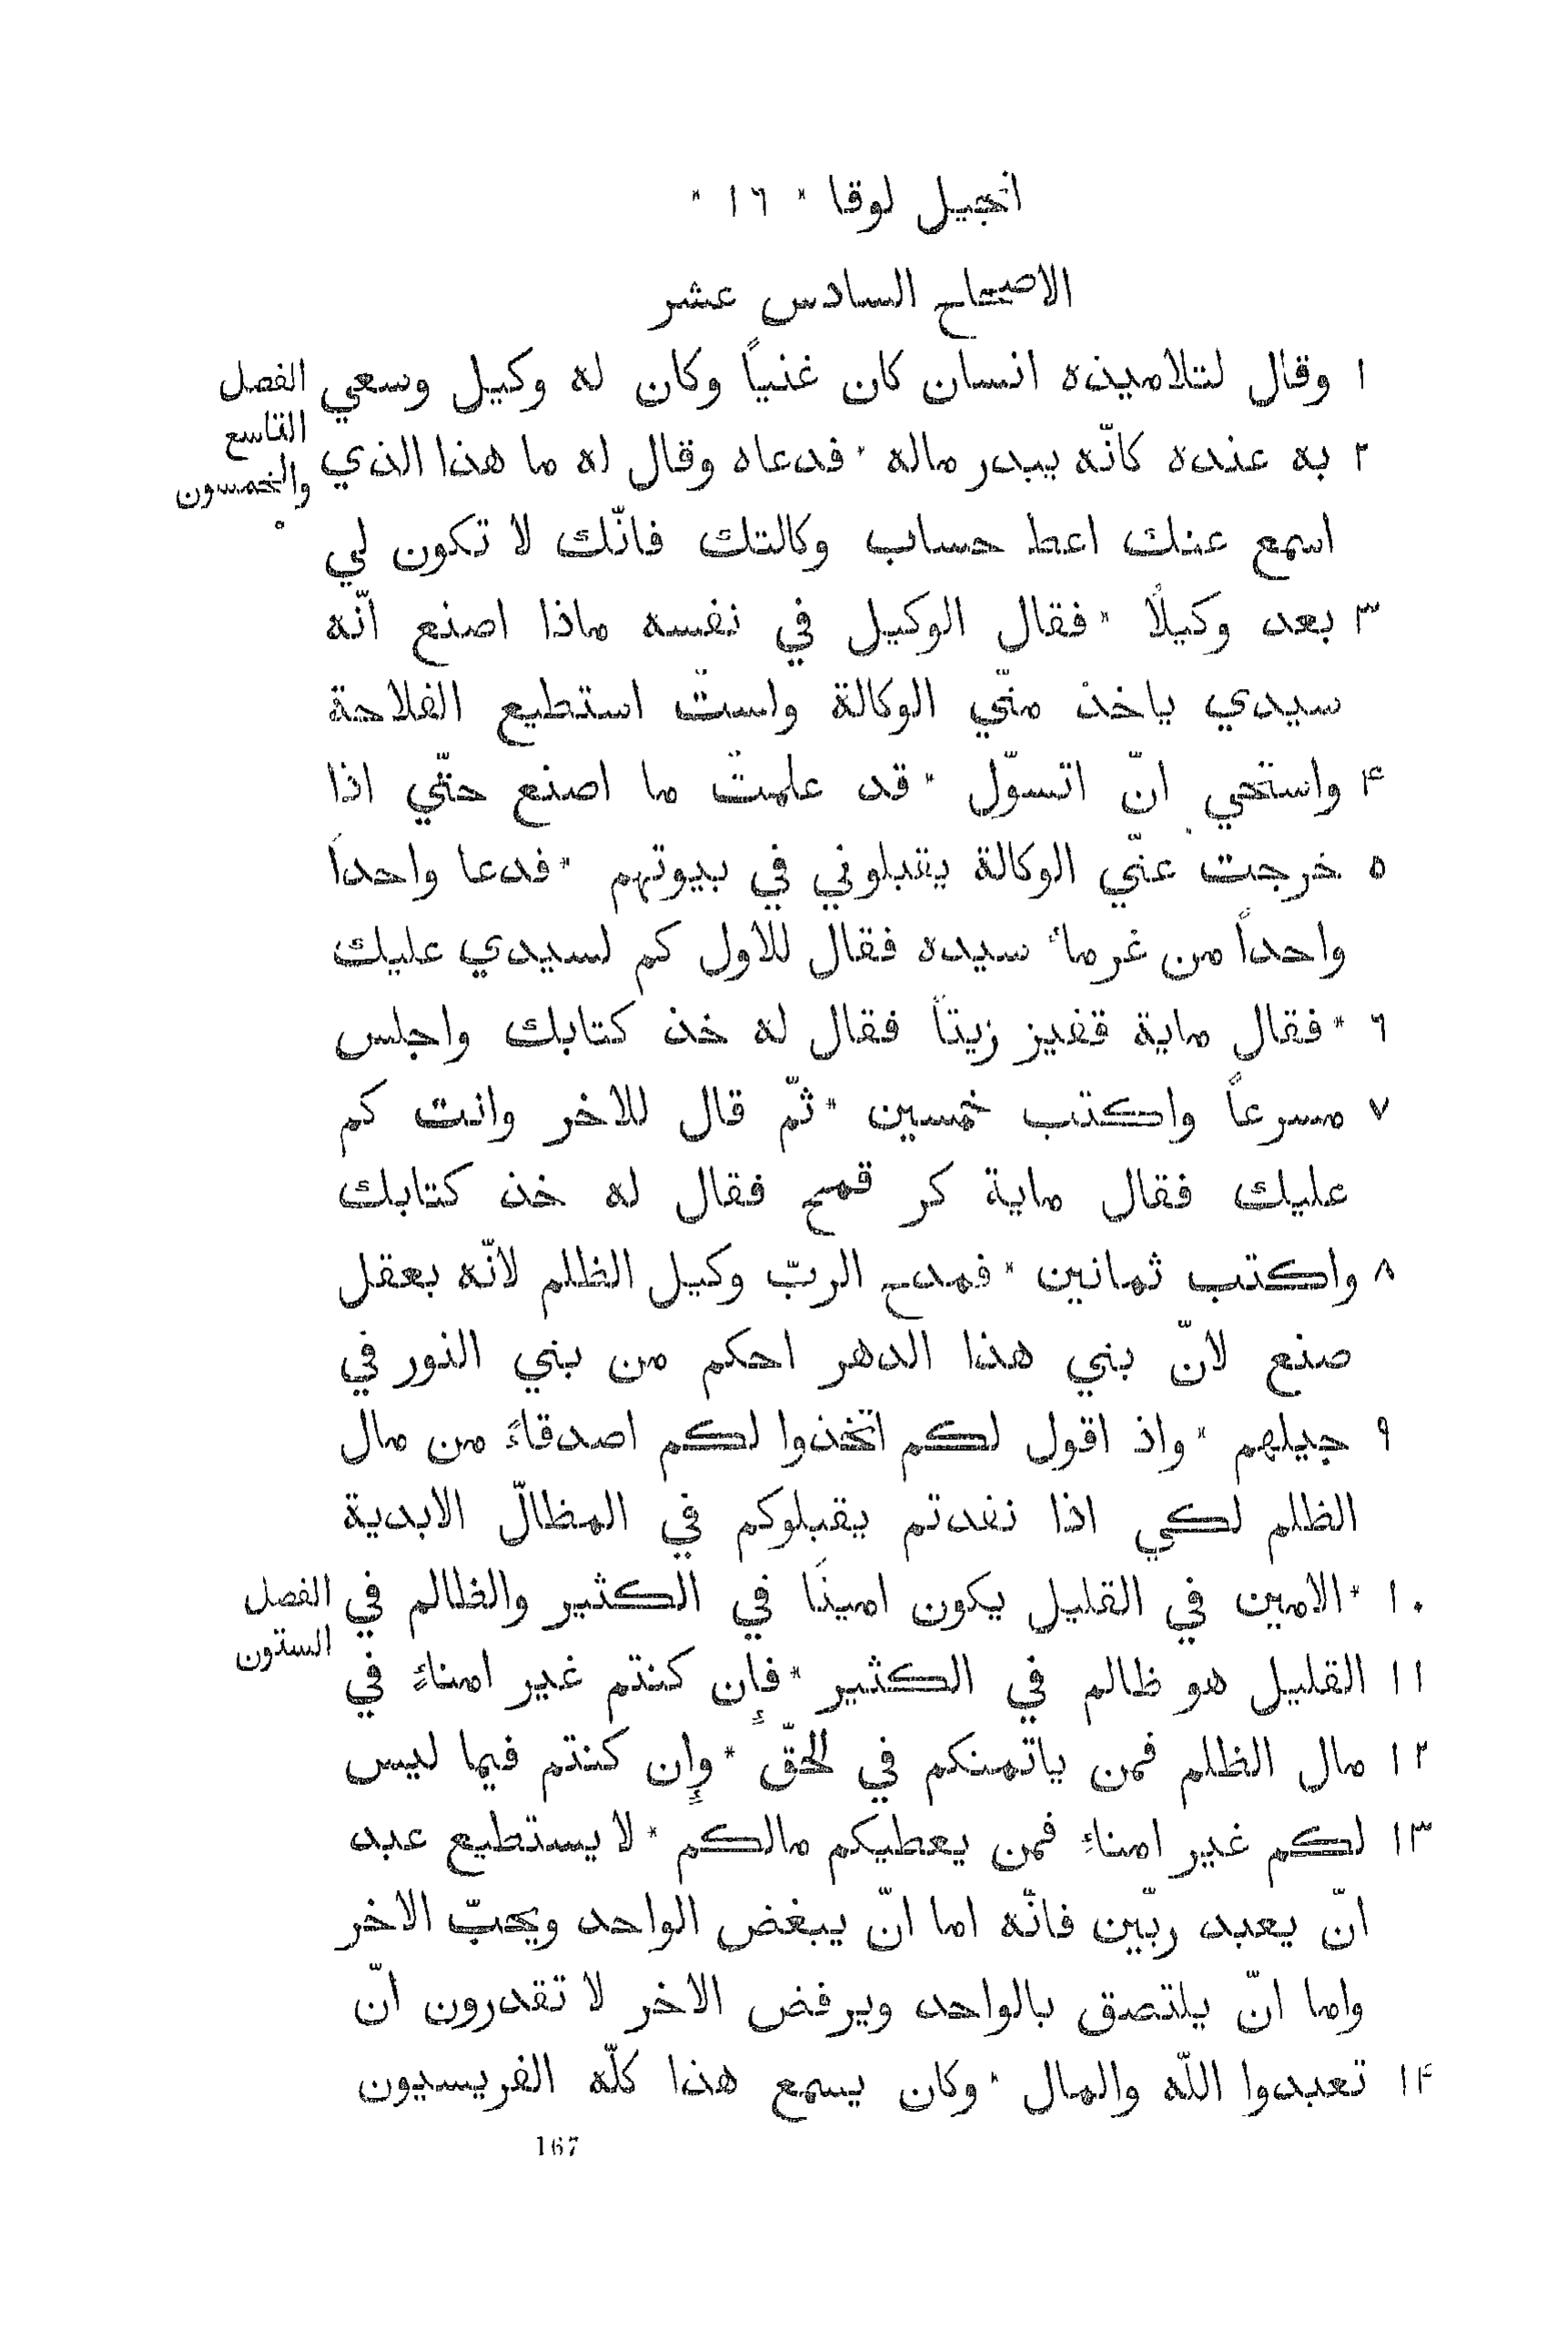 انجيل لوقا * ١٦ *
الاصحاح السادس عشر
١ وقال لتلاميذه انسان كان غنياً وكان له وكيل وسعي
الفصل
التاسع
والخمسون
٢ به عنده كانّه يبدر ماله * فدعاه وقال له ما هذا الذي
اسمع عنك اعط حساب وكالتك فانّك لا تكون لي
٣ بعد وكيلًا * فقال الوكيل في نفسه ماذا اصنع انّه
سيدي ياخذ منّي الوكالة ولستّ استطيع الفلاحة
۴ واستحي انّ اتسوّل * قد علمتّ ما اصنع حتّي اذا
٥ خرجت عنّي الوكالة يقبلوني في بيوتهم * فدعا واحداً
واحداً من غرماء سيده فقال للاول كم لسيدي عليك
٦ * فقال ماية قفيز زيتاً فقال له خذ كتابك واجلس
٧ مسرعاً واكتب خمسين * ثمّ قال للاخر وانت كم
عليك فقال ماية كر قمح فقال له خذ كتابك
٨ واكتب ثمانين * فمدح الربّ وكيل الظلم لانّه بعقل
صنع لانّ بني هذا الدهر احكم من بني النور في
٩ جيلهم * واذ اقول لكم اتخذوا لكم اصدقاءً من مال
الظلم لكي اذا نفدتم يقبلوكم في المظالّ الابدية
١٠ * الامين في القليل يكون امينًا في الكثير والظالم في
الفصل
الستون
١١ القليل هو ظالم في الكثير * فإن كنتم غير امناءٍ في
١٢ مال الظلم فمن ياتمنكم في الحقّ * وإن كنتم فيما ليس
١٣ لكم غير امناءٍ فمن يعطيكم مالكم * لا يستطيع عبد
انّ يعبد ربّين فانّه اما انّ يبغض الواحد ويحبّ الاخر
واما انّ يلتصق بالواحد ويرفض الاخر لا تقدرون انّ
١۴ تعبدوا اللّه والمال * وكان يسمع هذا كلّه الفريسيون
167